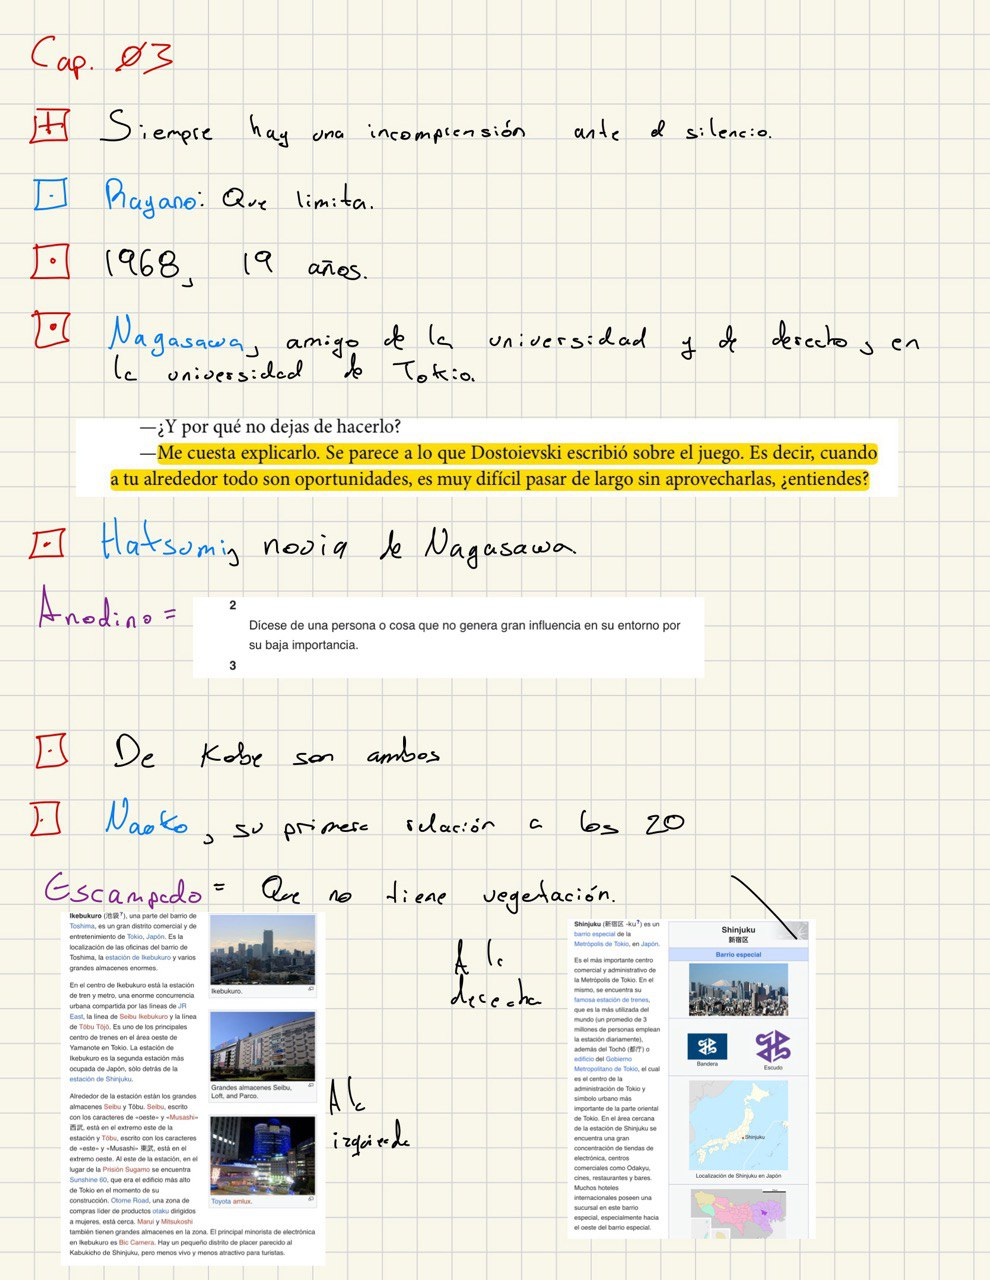 Cap. 03
Siempre hay una incomprensión ante el silencio.
Rayano: Que limita.
1968, 19 años.
Nagasawa, amigo de la universidad y de derecho, en
la universidad de Tokio.
—¿Y por qué no dejas de hacerlo?
—Me cuesta explicarlo. Se parece a lo que Dostoievski escribió sobre el juego. Es decir, cuando
a tu alrededor todo son oportunidades, es muy difícil pasar de largo sin aprovecharlas, ¿entiendes?
Hatsumi, novia de Nagasawa.
Anodino =
2
Dícese de una persona o cosa que no genera gran influencia en su entorno por
su baja importancia.
3
De Kobe son ambos
Naoko, su primera relación a los 20
Escampado = Que no tiene vegetación.
Ikebukuro (池袋?), una parte del barrio de
Toshima, es un gran distrito comercial y de
entretenimiento de Tokio, Japón. Es la
localización de las oficinas del barrio de
Toshima, la estación de Ikebukuro y varios
grandes almacenes enormes.
En el centro de Ikebukuro está la estación
de tren y metro, una enorme concurrencia
urbana compartida por las líneas de JR
East, la línea de Seibu Ikebukuro y la línea
de Tōbu Tōjō. Es uno de los principales
centro de trenes en el área oeste de
Yamanote en Tokio. La estación de
Ikebukuro es la segunda estación más
ocupada de Japón, sólo detrás de la
estación de Shinjuku.
Alrededor de la estación están los grandes
almacenes Seibu y Tōbu. Seibu, escrito
con los caracteres de «oeste» y «Musashi»
西武, está en el extremo este de la
estación y Tōbu, escrito con los caracteres
de «este» y «Musashi» 東武, está en el
extremo oeste. Al este de la estación, en el
lugar de la Prisión Sugamo se encuentra
Sunshine 60, que era el edificio más alto
de Tokio en el momento de su
construcción. Otome Road, una zona de
compras líder de productos otaku dirigidos
a mujeres, está cerca. Marui y Mitsukoshi
también tienen grandes almacenes en la zona. El principal minorista de electrónica
en Ikebukuro es Bic Camera. Hay un pequeño distrito de placer parecido al
Kabukicho de Shinjuku, pero menos vivo y menos atractivo para turistas.
Ikebukuro.
Grandes almacenes Seibu,
Loft, and Parco.
Toyota amlux.
A la
izquierda
A la
derecha
Shinjuku (新宿区 -ku?) es un
barrio especial de la
Metrópolis de Tokio, en Japón.
Es el más importante centro
comercial y administrativo de
la Metrópolis de Tokio. En el
mismo, se encuentra su
famosa estación de trenes,
que es la más utilizada del
mundo (un promedio de 3
millones de personas emplean
la estación diariamente),
además del Tochō (都庁) o
edificio del Gobierno
Metropolitano de Tokio, el cual
es el centro de la
administración de Tokio y
símbolo urbano más
importante de la parte oriental
de Tokio. En el área cercana
de la estación de Shinjuku se
encuentra una gran
concentración de tiendas de
electrónica, centros
comerciales como Odakyu,
cines, restaurantes y bares.
Muchos hoteles
internacionales poseen una
sucursal en este barrio
especial, especialmente hacia
el oeste del barrio especial.
Shinjuku
新宿区
Barrio especial
Bandera
Escudo
Shinjuku
Localización de Shinjuku en Japón